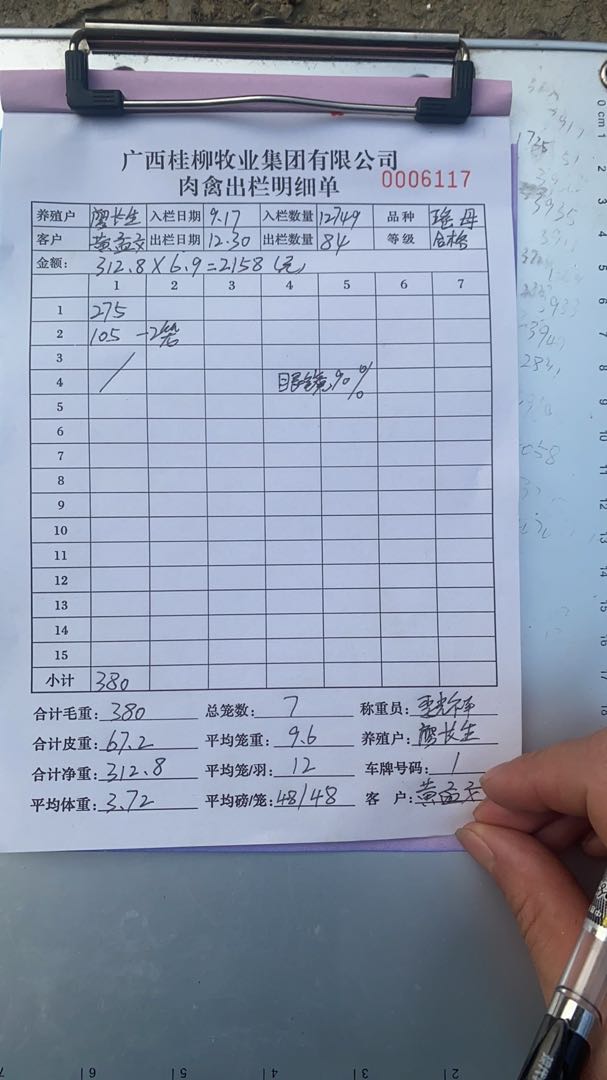 广西桂柳牧业集团有限公司
肉禽出栏明细单 0006117
养殖户 廖长生 入栏日期 9.17 入栏数量 12749 品种 瑶母
客户 黄孟文 出栏日期 12.30 出栏数量 84 等级 合格
金额: 312.8×6.9=2158(元)
1 2 3 4 5 6 7
1 275
2 105 -2笼
3
4 眼镜90%
5
6
7
8
9
10
11
12
13
14
15
小计 380
合计毛重: 380 总笼数: 7 称重员:
合计皮重: 67.2 平均笼重: 9.6 养殖户: 廖长生
合计净重: 312.8 平均笼/羽: 12 车牌号码: 1
平均体重: 3.72 平均磅/笼: 48/48 客户: 黄孟文
0 cm 1